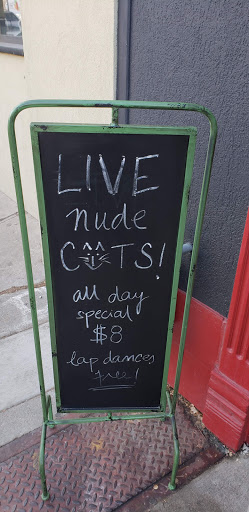 LIVE
nude
CATS!
all day
special
$8
lap dances
free!